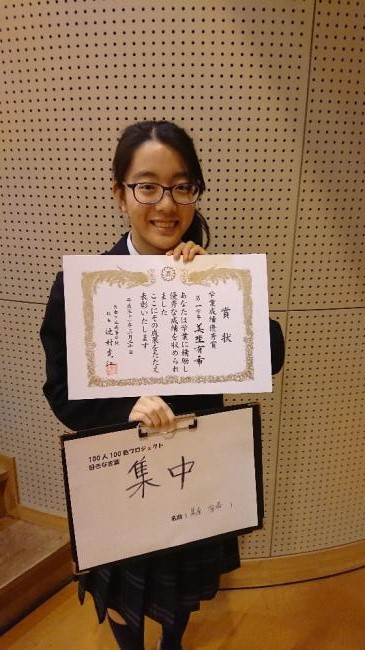 賞状
学業成績優秀賞
第一学年
あなたは学業に精励し
優秀な成績を収められ
ました
ここにその成果をたたえ
表彰いたします
100人100色プロジェクト
好きな言葉
集中
名前(
)